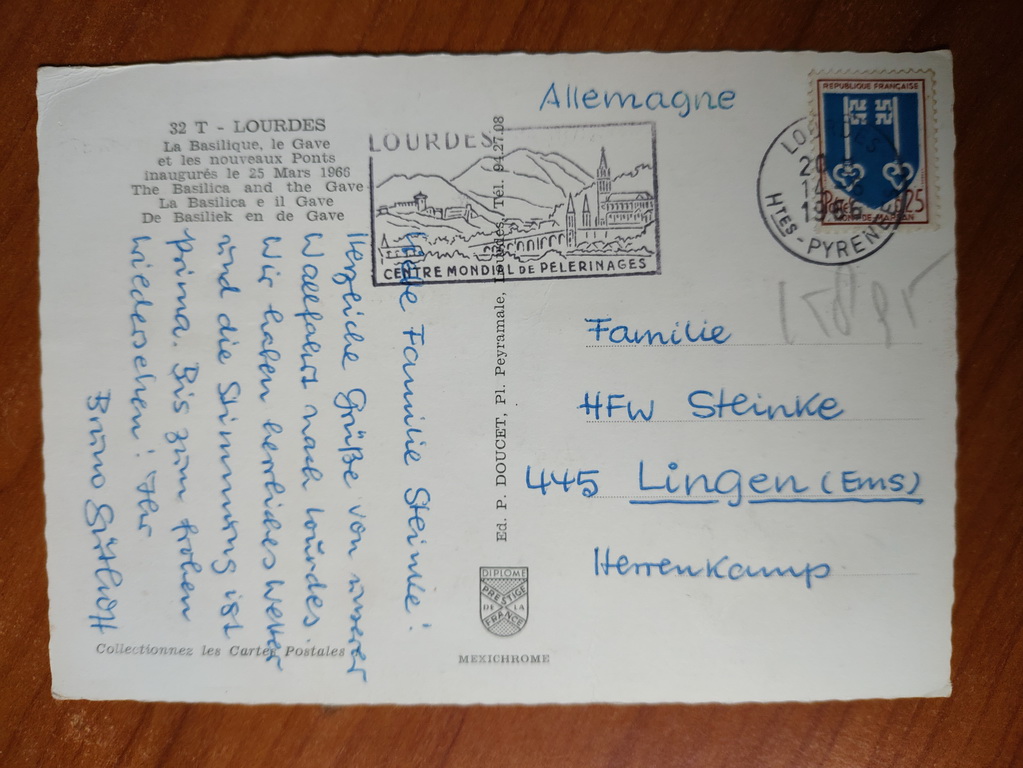 32 T - LOURDES
La Basilique, le Gave
et les nouveaux Ponts
inaugurés le 25 Mars 1966
The Basilica and the Gave
La Basilica e il Gave
De Basiliek en de Gave
Liebe Familie Steinke!
Herzliche Grüße von unserer
Wallfahrt nach Lourdes
Wir haben herrliches Wetter
und die Stimmung ist
prima. Bis zum frohen
Wiedersehen! Ihr
Bruno
Collectionnez les Cartes Postales
LOURDES
CENTRE MONDIAL DE PELERINAGES
Ed. P. DOUCET, Pl. Peyramale, Lourdes, Tél. 94.27.08
DIPLOME
PRESTIGE
DE LA
FRANCE
MEXICHROME
Allemagne
REPUBLIQUE FRANÇAISE
0,25
MONT-DE-MARSAN
LOURDES
1966
HTES-PYRENEES
Familie
HFW Steinke
445 Lingen (Ems)
Herrenkamp